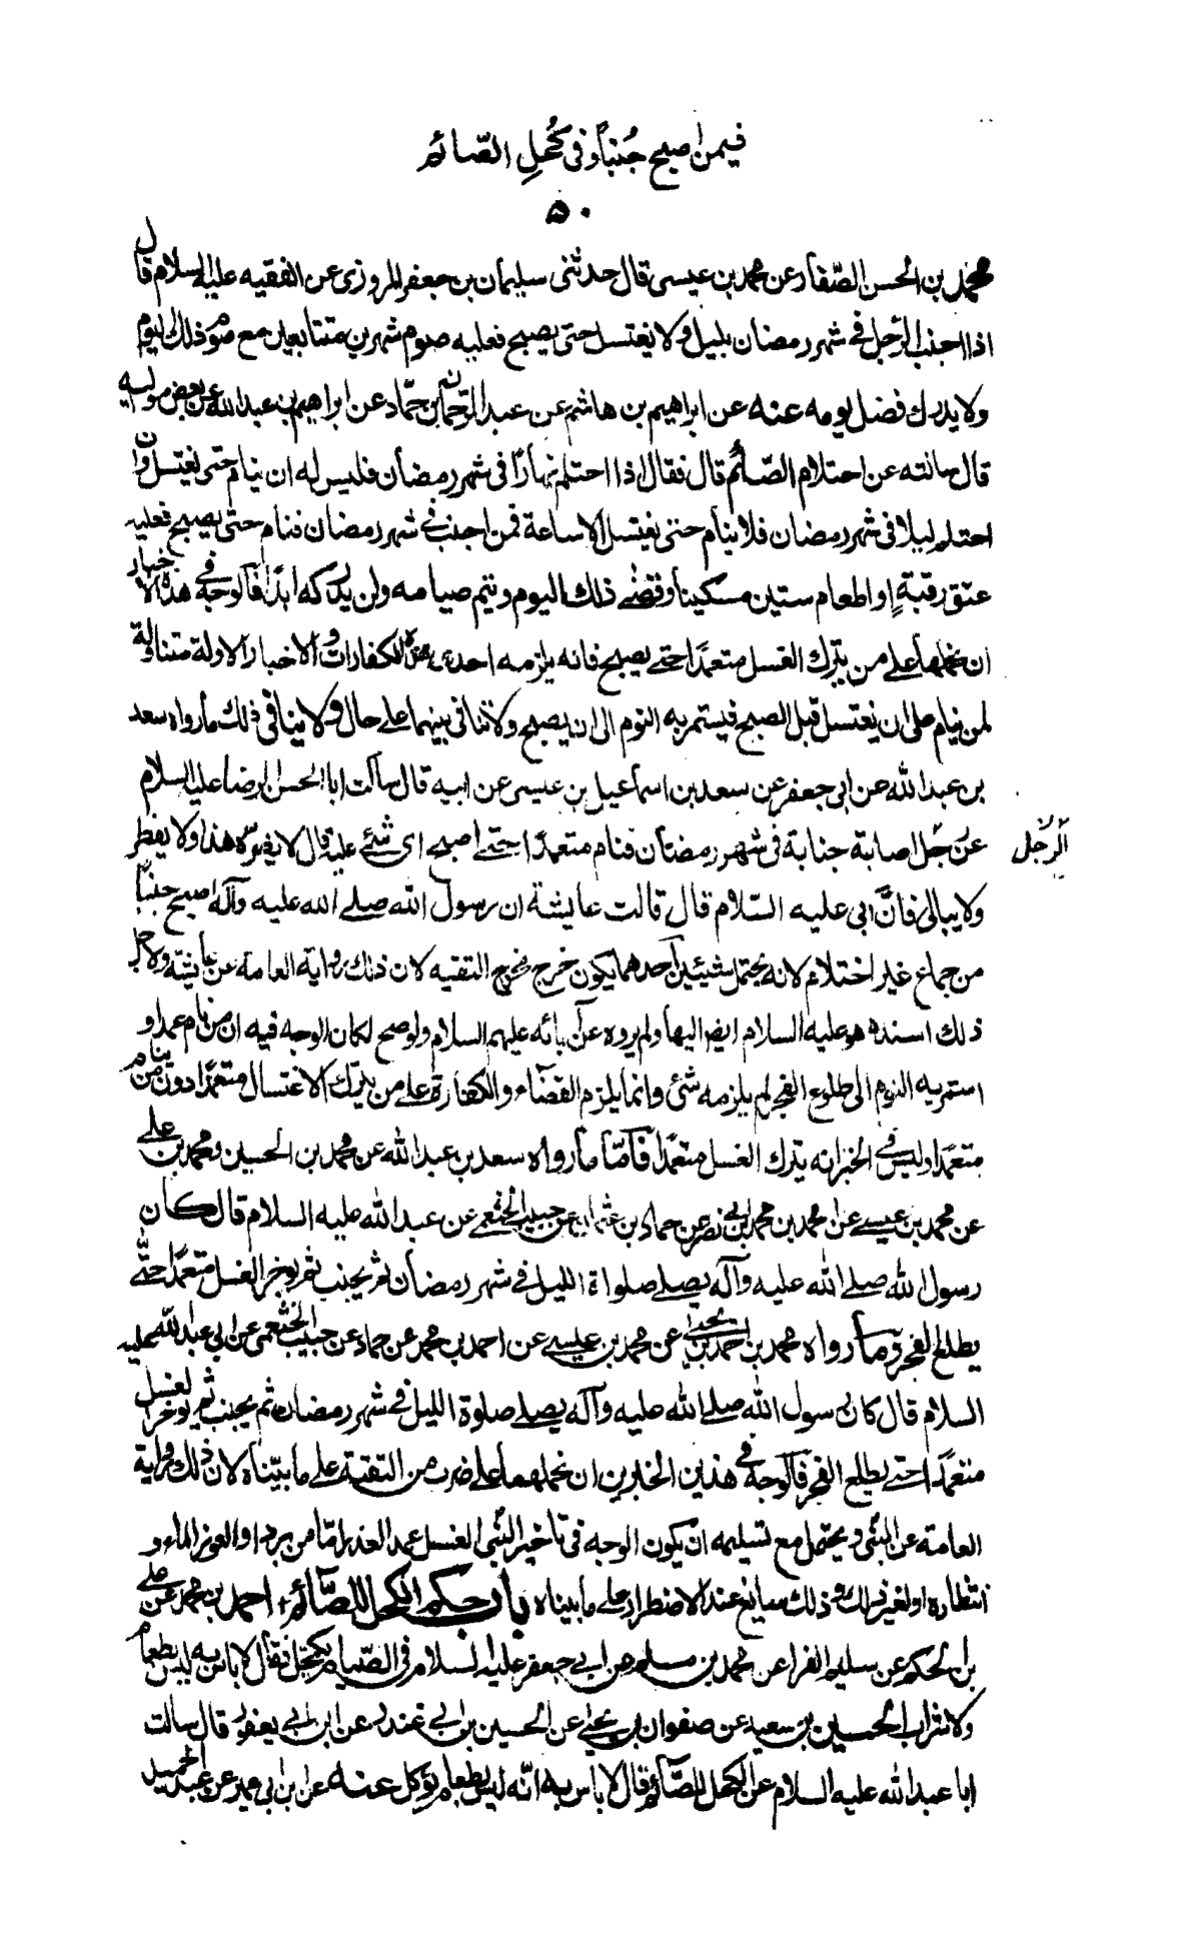 فيمن اصبح جُنباً وفى كُحلِ الصّائم
٥٠
محمد بن الحسن الصّفار عن محمد بن عيسى قال حدثنى سليمان بن جعفر المروزى عن الفقيه عليه السلام قال
اذا اجنب الرّجل فى شهر رمضان بليل ولا يغتسل حتى يصبح فعليه صوم شهرين متتابعين مع صوم ذلك اليوم
ولا يدرك فضل يومه عنه عن ابراهيم بن هاشم عن عبد الرّحمان بن حمّاد عن ابراهيم بن عبد الله عن بعض مواليه
قال سالته عن احتلام الصّائم قال فقال اذا احتلم نهارًا فى شهر رمضان فليس له ان ينام حتى يغتسل وان
احتلم ليلا فى شهر رمضان فلا ينام حتى يغتسل الا ساعة فمن اجنب فى شهر رمضان فنام حتى يصبح فعليه
عتق رقبةٍ او اطعام ستين مسكيناً وقضى ذلك اليوم ويتم صيامه ولن يدركه ابدًا فالوجه فى هذه الاخبار
ان نحملها على من يترك الغسل متعمدًا حتى يصبح فانه يلزمه احدى هذه الكفارات والاخبار الاولة متناولة
لمن ينام على ان يغتسل قبل الصبح فيستمر به النوم الى ان يصبح ولا تنافى بينهما على حال ولا ينافى ذلك ما رواه سعد
بن عبد الله عن ابى جعفر عن سعد بن اسماعيل بن عيسى عن ابيه قال سالت ابا الحسن الرضا عليه السلام
عن رجل اصابة جنابة فى شهر رمضان فنام متعمدًا حتى اصبح اى شئ عليه قال لا يضره هذا ولا يفطر
الرجل
ولا يبالى فانّ ابى عليه السّلام قال قالت عايشة ان رسول الله صلى الله عليه وآله اصبح جنباً
من جماع غير احتلام لانه يحتمل شيئين احدهما يكون خرج مخرج التقيه لان ذلك رواية العامة عن عايشة ولاجل
ذلك اسنده هو عليه السلام ايضا اليها ولم يروه عن آبائه عليهم السلام ولو صح لكان الوجه فيه ان من نام عمدا و
استمر به النوم الى طلوع الفجر لم يلزمه شئ وانما يلزم القضاء والكفارة على من يترك الاغتسال متعمدًا دون من ينام
متعمدا وليس فى الخبر انه يترك الغسل متعمدًا فامّا ما رواه سعد بن عبد الله عن محمد بن الحسين ومحمد بن على
عن محمد بن عيسى عن احمد بن محمد بن ابى نصر عن حماد بن عثمان عن حبيب الخثعمى عن عبد الله عليه السلام قال كان
رسول الله صلى الله عليه وآله يصلى صلواة الليل فى شهر رمضان ثم يجنب ثم يوخر الغسل متعمدًا حتّى
يطلع الفجر وما رواه محمد بن احمد بن يحيى عن محمد بن عيسى عن احمد بن محمد عن حماد عن حبيب الخثعمى عن ابى عبد الله عليه
السلام قال كان رسول الله صلى الله عليه وآله يصلى صلوة الليل فى شهر رمضان ثم يجنب ثم يوخر الغسل
متعمدًا حتى يطلع الفجر فالوجه فى هذين الخبرين ان نحملهما على ضرب من التقية على ما بيّناه لان ذلك رواية
العامة عن النبى ويحتمل مع تسليمه ان يكون الوجه فى تاخير النبى الغسل عمدا لعذر امّا من برد او العوز الماء و
انتظاره او لغير ذلك وذلك سايغ عند الاضطرار على ما بيناه باب حكم الكحل للصّائم احمد بن محمد عن على
بن الحكم عن سليم الفرا عن محمد بن مسلم عن ابى جعفر عليه السلام فى الصّيام يكتحل فقال لا باس به ليس بطعام
ولا شراب الحسين بن سعيد عن صفوان بن يحيى عن الحسين بن ابى غندر عن ابن ابى يعفور قال سالت
ابا عبد الله عليه السلام عن الكحل للصّائم قال لا باس به انّه ليس بطعام يؤكل عنه عن ابن ابى عمير عن عبد الحميد